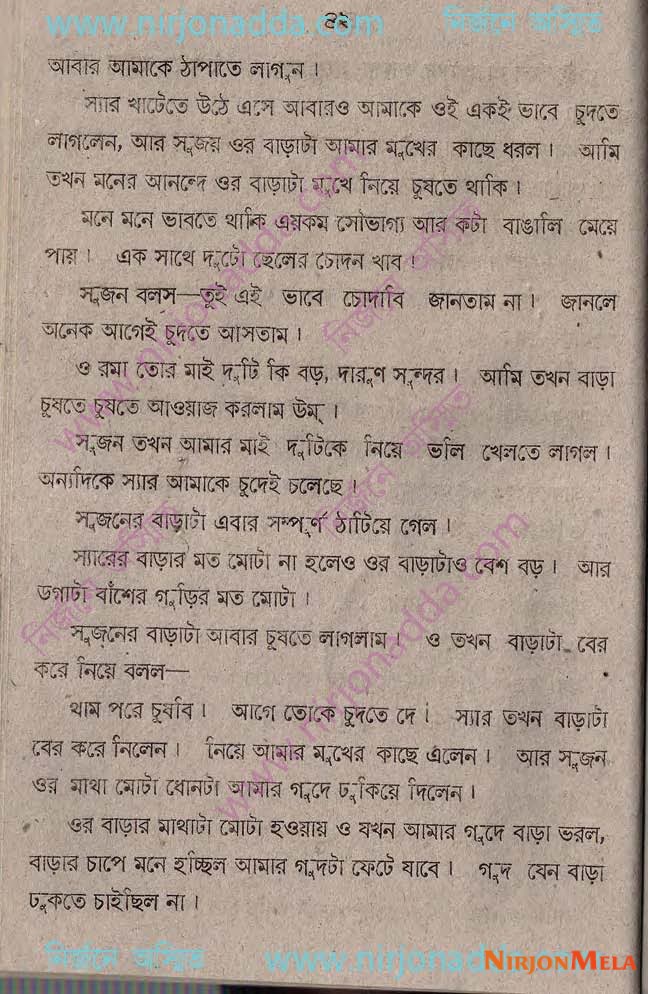 www.nirjonadda.com ৫২ নির্জনে অস্মিত
আবার আমাকে ঠাপাতে লাগলেন।
স্যার খাটেতে উঠে এসে আবারও আমাকে ওই একই ভাবে চুদতে
লাগলেন, আর সুজয় ওর বাড়াটা আমার মুখের কাছে ধরল। আমি
তখন মনের আনন্দে ওর বাড়াটা মুখে নিয়ে চুষতে থাকি।
মনে মনে ভাবতে থাকি এরকম সৌভাগ্য আর কটা বাঙালি মেয়ে
পায়। এক সাথে দুটো ছেলের চোদন খাব।
সুজন বলস—তুই এই ভাবে চোদাবি জানতাম না। জানলে
অনেক আগেই চুদতে আসতাম।
ও রমা তোর মাই দুটি কি বড়, দারুণ সুন্দর। আমি তখন বাড়া
চুষতে চুষতে আওয়াজ করলাম উম্।
সুজন তখন আমার মাই দুটিকে নিয়ে ভলি খেলতে লাগল।
অন্যদিকে স্যার আমাকে চুদেই চলেছে।
সুজনের বাড়াটা এবার সম্পূর্ণ ঠাটিয়ে গেল।
স্যারের বাড়ার মত মোটা না হলেও ওর বাড়াটাও বেশ বড়। আর
ডগাটা বাঁশের গুড়ির মত মোটা।
সুজনের বাড়াটা আবার চুষতে লাগলাম। ও তখন বাড়াটা বের
করে নিয়ে বলল—
থাম পরে চুষবি। আগে তোকে চুদতে দে। স্যার তখন বাড়াটা
বের করে নিলেন। নিয়ে আমার মুখের কাছে এলেন। আর সুজন
ওর মাথা মোটা ধোনটা আমার গুদে ঢুকিয়ে দিলেন।
ওর বাড়ার মাথাটা মোটা হওয়ায় ও যখন আমার গুদে বাড়া ভরল,
বাড়ার চাপে মনে হচ্ছিল আমার গুদটা ফেটে যাবে। গুদ যেন বাড়া
ঢুকতে চাইছিল না।
নির্জনে অস্মিত www.nirjonadda.com
NIRJONMELA